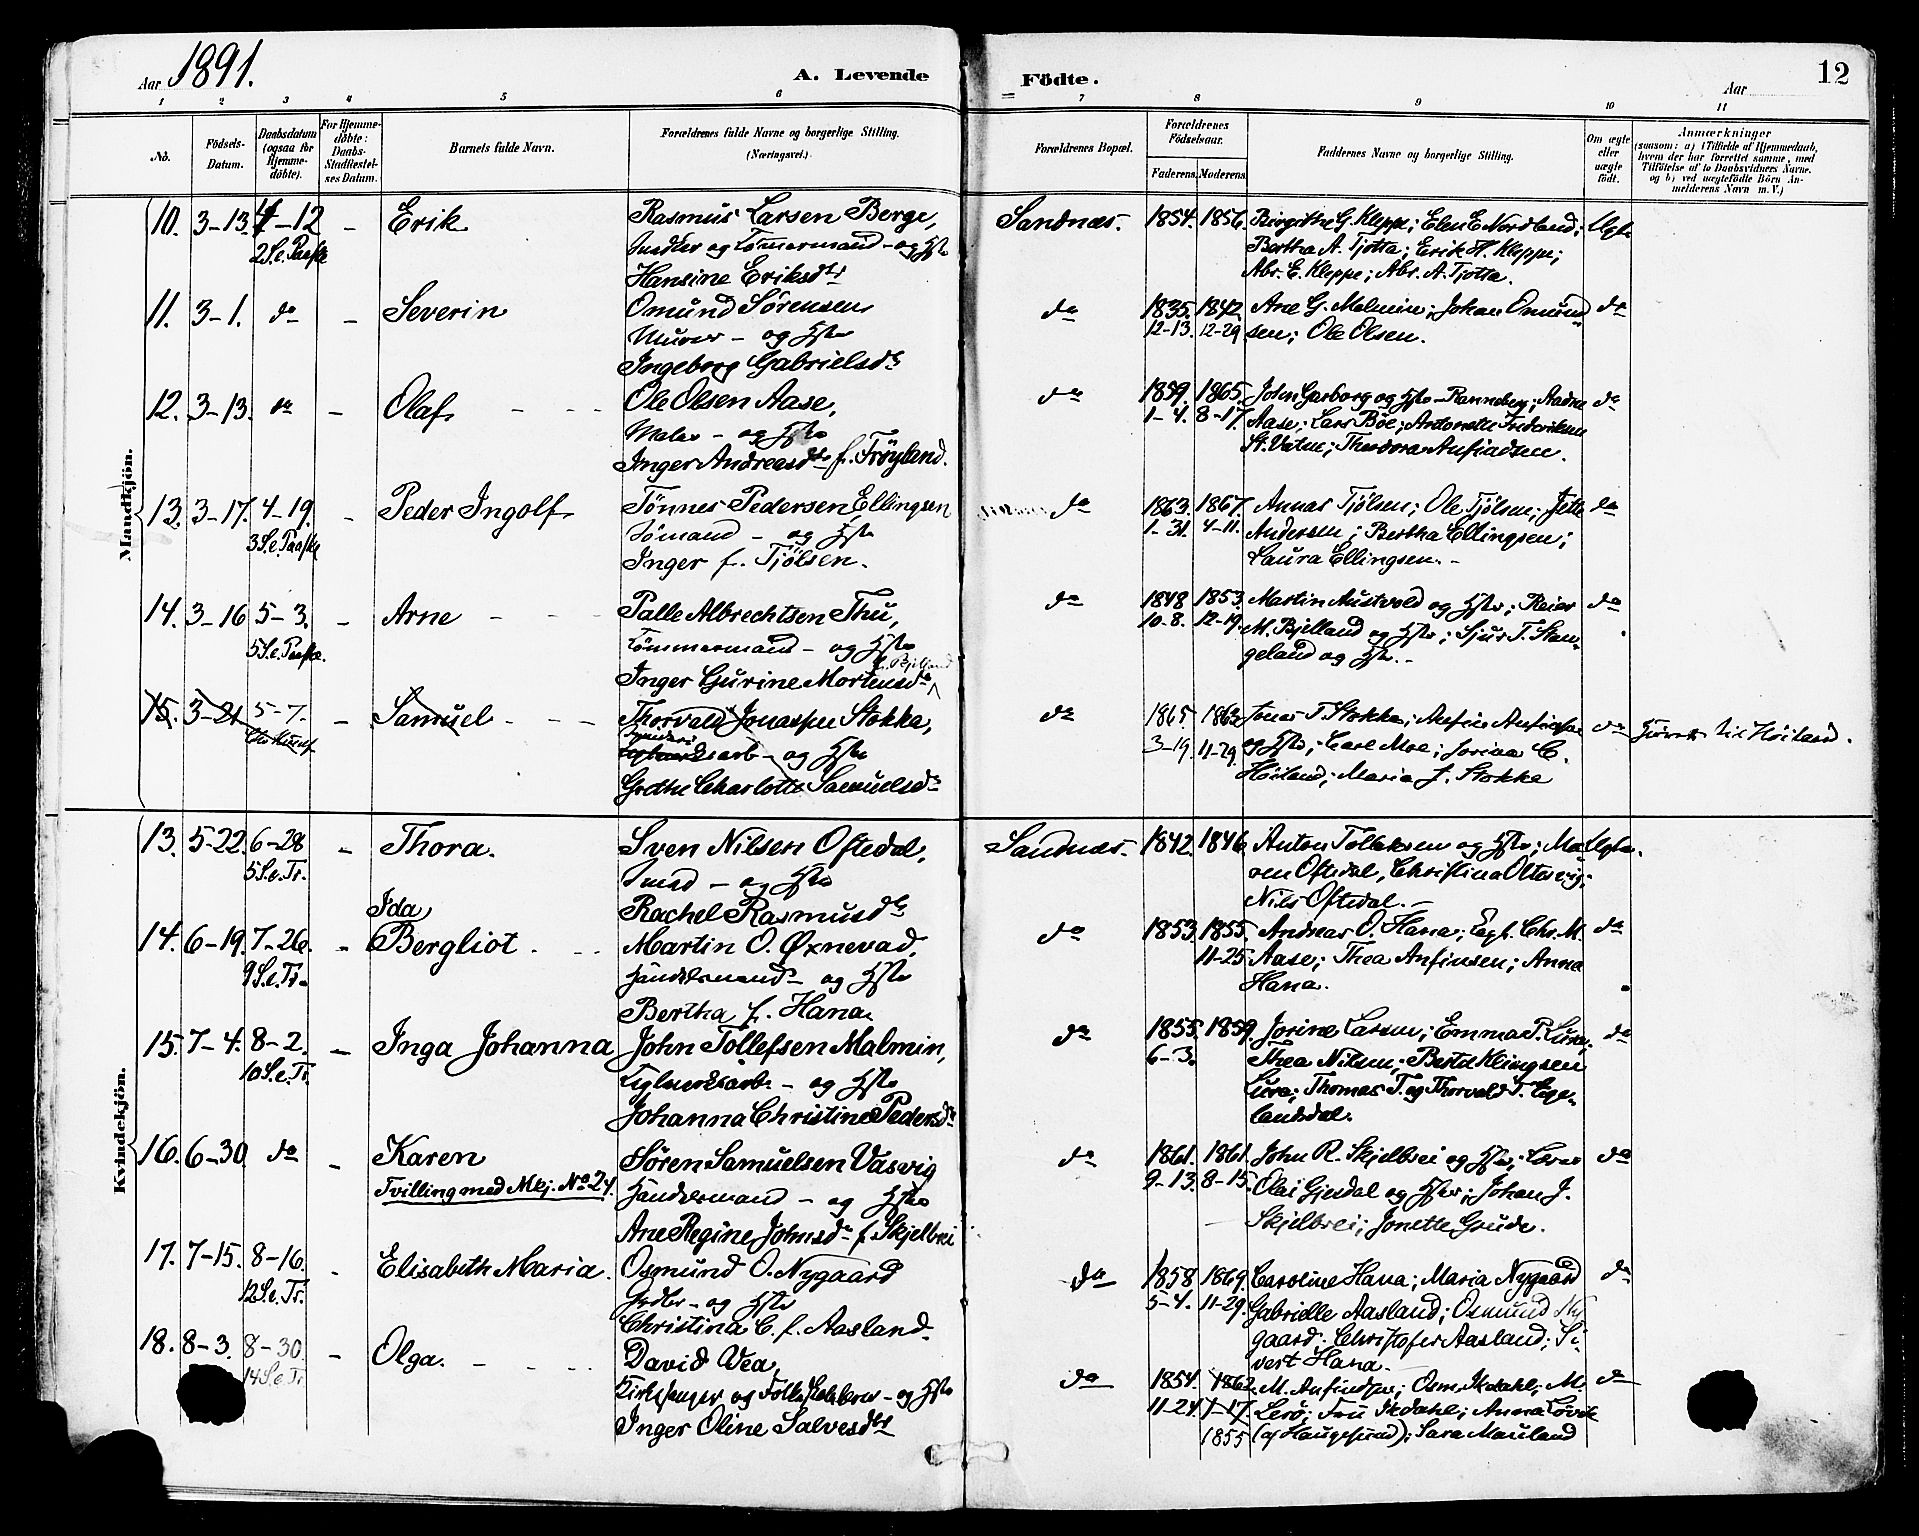 Aar 1891. A. Levende Födte. Aar 12
1 2 3 4 5 6 7 8 9 10 11
No. Födsels-Datum. Daabsdatum (ogsaa for Hjemmedöbte). For Hjemmedöbte: Daabs-Stadfestelses Datum. Barnets fulde Navn. Forældrenes fulde Navne og borgerlige Stilling. (Næringsvei.) Forældrenes Bopæl. Forældrenes Födselsaar. Faderens. Moderens. Faddernes Navne og borgerlige Stilling. Om ægte eller uægte födt. Anmærkninger (saasom: a) i Tilfælde af Hjemmedaab, hvem der har forrettet samme, med Tilföielse af to Daabsvidners Navne, og b) ved uægtefödte Börn Anmelderens Navn m. V.)
Mandkjön.
10. 3-13. 4-12 - Erik Rasmus Larsen Berge, Sandnæs. 1854. 1856. Birgithe G. Kleppe; Elen E. Nordland; Ægte
2 S. e. Paaske Snedker og Tømmermand - og Hstr Bertha A. Tjotta; Erik H. Kleppe;
Hansine Eriksdtr Abr. E. Kleppe; Abr. A. Tjotta.
11. 3-1. do - Severin Omund Sørensen do 1835. 1842. Ane G. Malmin; Johan Omund- do
Murer - og Hstr 12-13. 12-29 sen; Ole Olsen.
Ingeborg Gabrielsdtr
12. 3-13. do - Olaf Ole Olsen Aase, do 1859. 1865. John Garborg og Hstr - Ranneberg; Aadne do
Maler - og Hstr 1-4. 8-17. Aase; Lars Böe; Antonette Frederiksen
Inger Andreasdtr f. Frøyland. St. Vatne; Theodora Anfindsen.
13. 3-17. 4-19. - Peder Ingolf Tönnes Pedersen Ellingsen do 1863. 1867. Annas Tjölsen; Ole Tjölsen; Jette do
3 S. e. Paaske Sømand - og Hstr 1-31. 4-11. Andersen; Bertha Ellingsen;
Inger f. Tjölsen. Laura Ellingsen. -
14. 3-16 5-3. - Arne Palle Albrechtsen Thu, do 1848 1853. Martin Austvold og Hstr; Reier do
5 S. e. Paaske. Tømmermand - og Hstr 10-8. 12-19. M. Bjelland og Hstr; Sjur T. Stan-
f. Bjelland
Inger Gurine Mortensdtr geland og Hstr. -
15. 3-21 5-7. - Samuel Thorvald Jonassen Stokka, do 1865 1863 Jonas T. Stokka; do
arb - og Hstr 3-19. 11-29. og Hstr; Carl Moe; C. til Höiland.
Grethe Charlotte Samuelsdtr Höiland; Maria J. Stokka
Kvindekjön.
13. 5-22. 6-28 - Thora. Sven Nilsen Oftedal, Sandnæs. 1842. 1846. Anton Tollaksen og Hstr; Ma- Ægte.
5 S. e. Tr. Smed - og Hstr ren Oftedal, Christina Oltesvig;
Rachel Rasmusdtr Nils Oftedal. -
Ida
14. 6-19. 7-26. - Bergliot Martin O. Øxnevad, do 1853. 1855. Andreas O. Hana; Chr. M. do
9 S. e. Tr. Handelsmand - og Hstr 11-25 Aase; Thea Anfinsen; Anna
Bertha f. Hana. Hana.
15. 7-4. 8-2. - Inga Johanna John Tollefsen Malmin, do 1855. 1859. Jorine Larsen; Emma P. Lura; do
10 S. e. Tr. Teglverksarb. - og Hstr 6-3. Thea Nilsen; Bertel Klingsen
Johanna Christine Pedersdtr Lura; Thomas T. og Thorvald T. Ege-
landsdal.
16. 6-30. do - Karen Søren Samuelsen Vasvig do 1861. 1861. John R. Skjelbrei og Hstr; Lærer do
Tvilling med Mkj. No 24. Handelsmand - og Hstr 9-13. 8-15. Olai Gjesdal og Hstr; Johan J.
Ane Regine Johnsdtr f. Skjelbrei Skjelbrei; Jonette Grude.
17. 7-15. 8-16. - Elisabeth Maria. Osmund O. Nygaard do 1858 1869. Caroline Hana; Maria Nygaard do
12 S. e. Tr. - og Hstr 5-4. 11-29. Gabrielle Aasland; Osmund Ny-
Christina C. f. Aasland. gaard. Christofer Aasland; Si-
vert Hana. -
18. 8-3. 8-30. - Olga. David Vea, do 1854. 1862. M. Anfindsen; Osm. Skdahl; M. do
14 S. e. Tr. Kirkesanger og Folkeskolelærer - og Hstr 11-24. 1-17. Lerö; Fru Skdahl; Anna Lövik
Inger Oline Salvesdtr 1855 (af Haugesund); Sara Mauland